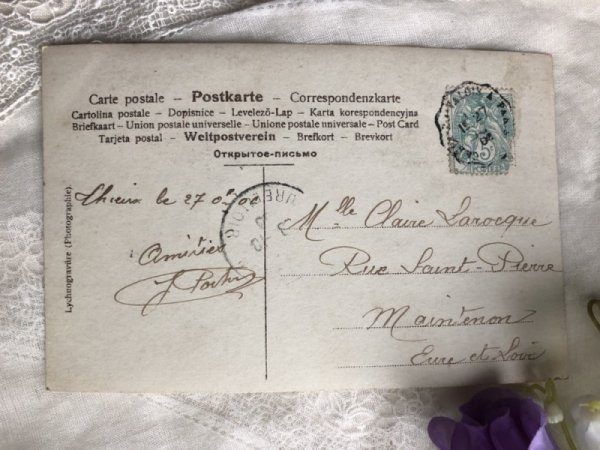 Carte postale – Postkarte – Correspondenzkarte
Cartolina postale – Dopisnice – Levelező-Lap – Karta korespondencyjna
Briefkaart – Union postale universelle – Unione postale universale – Post Card
Tarjeta postal – Weltpostverein – Brefkort – Brevkort
Открытое-письмо
Lychnogravüre (Photographie)
le 27
Amitiés
Mlle Claire Larocque
Rue Saint-Pierre
Maintenon
Eure et Loir
5
EURE